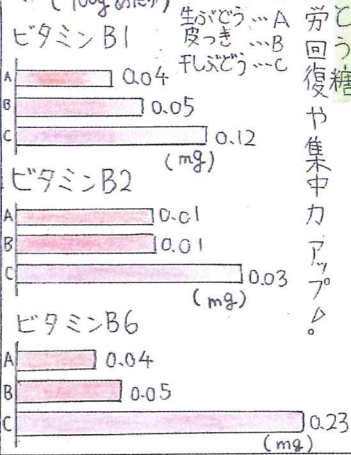 (100gあたり)
生ぶどう…A
皮つき…B
干しぶどう…C
ビタミンB1
A 0.04
B 0.05
C 0.12
(mg)
ビタミンB2
A 0.01
B 0.01
C 0.03
(mg)
ビタミンB6
A 0.04
B 0.05
C 0.23
(mg)
とう糖
労回復や集中力アップ♪。